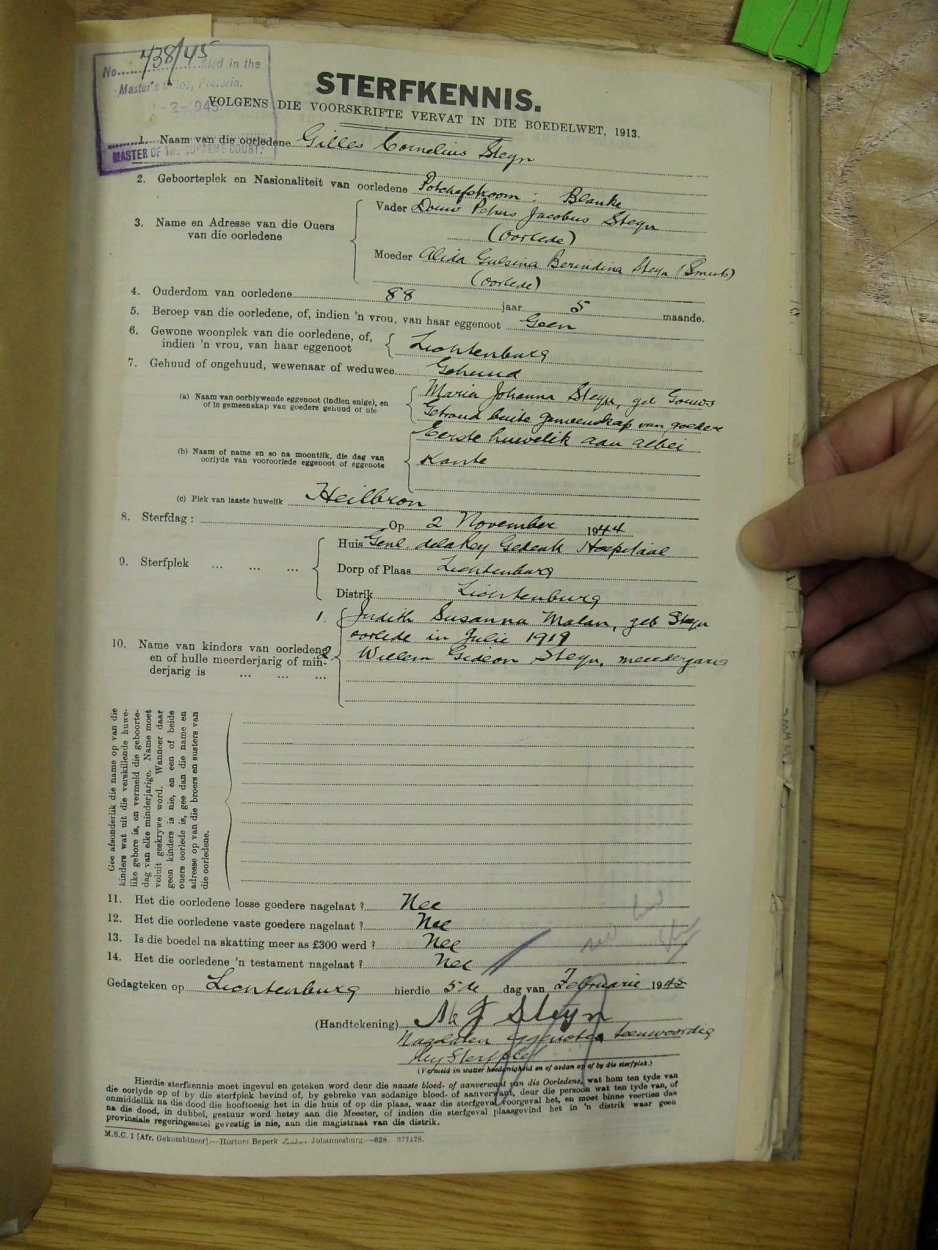 No. 738/45 filed in the
Master's Office, Pretoria.
-2-1945
MASTER OF THE SUPREME COURT.
STERFKENNIS.
VOLGENS DIE VOORSKRIFTE VERVAT IN DIE BOEDELWET, 1913.
1. Naam van die oorledene Gilles Cornelius Steyn
2. Geboorteplek en Nasionaliteit van oorledene Potchefstroom : Blanke
3. Name en Adresse van die Ouers van die oorledene
Vader Douw Petrus Jacobus Steyn
(oorlede)
Moeder Alida Gulsina Berindina Steyn (Smuts)
(oorlede)
4. Ouderdom van oorledene 88 jaar 5 maande.
5. Beroep van die oorledene, of, indien 'n vrou, van haar eggenoot Geen
6. Gewone woonplek van die oorledene, of,
indien 'n vrou, van haar eggenoot Lichtenburg
7. Gehuud of ongehuud, wewenaar of weduwee Gehuud
(a) Naam van oorblywende eggenoot (indien enige), en
of in gemeenskap van goedere gehuud of nie
Maria Johanna Steyn, geb Gouws
Getroud buite gemeenskap van goedere
Eerste huwelik aan albei
(b) Naam of name en so na moontlik, die dag van
oorlyde van vooroorlede eggenoot of eggenote
kante
(c) Plek van laaste huwelik Heilbron
8. Sterfdag : Op 2 November 1944
9. Sterfplek ... ... ...
Huis Genl delaRey Gedenk Hospitaal
Dorp of Plaas Lichtenburg
Distrik Lichtenburg
10. Name van kinders van oorledene
en of hulle meerderjarig of min-
derjarig is ... ... ...
1. Judith Susanna Malan, geb Steyn
oorlede in Julie 1919
2 Willem Gideon Steyn, meerderjarig
Gee afsonderlik die name op van die
kinders wat uit die verskillende huwe-
like gebore is, en vermeld die geboorte-
dag van elke minderjarige. Name moet
voluit geskrywe word. Wanneer daar
geen kinders is nie, en een of beide
ouers oorlede is, gee dan die name en
adresse op van die broers en susters van
die oorledene.
11. Het die oorledene losse goedere nagelaat ? Nee
12. Het die oorledene vaste goedere nagelaat ? Nee
13. Is die boedel na skatting meer as £300 werd ? Nee
14. Het die oorledene 'n testament nagelaat ? Nee
Gedagteken op Lichtenburg hierdie 5de dag van Februarie 1945
(Handtekening) Steyn
Nagelaten eggenote teenwoordig
by Sterfplek
(Vermeld in watter hoedanigheid en of asdan op of by die sterfplek.)
Hierdie sterfkennis moet ingevul en geteken word deur die naaste bloed- of aanverwant van die Oorledene, wat hom ten tyde van
die oorlyde op of by die sterfplek bevind of, by gebreke van sodanige bloed- of aanverwant, deur die persoon wat ten tyde van, of
onmiddellik na die dood die hooftoesig het in die huis of op die plaas, waar die sterfgeval voorgeval het, en moet binne veertien dae
na die dood, in dubbel, gestuur word hetsy aan die Meester, of indien die sterfgeval plaasgevind het in 'n distrik waar geen
provinsiale regeringssetel gevestig is nie, aan die magistraat van die distrik.
M.S.C. 1 [Afr. Gekombineer].—Hortors Beperk Johannesburg.—628. 877478.